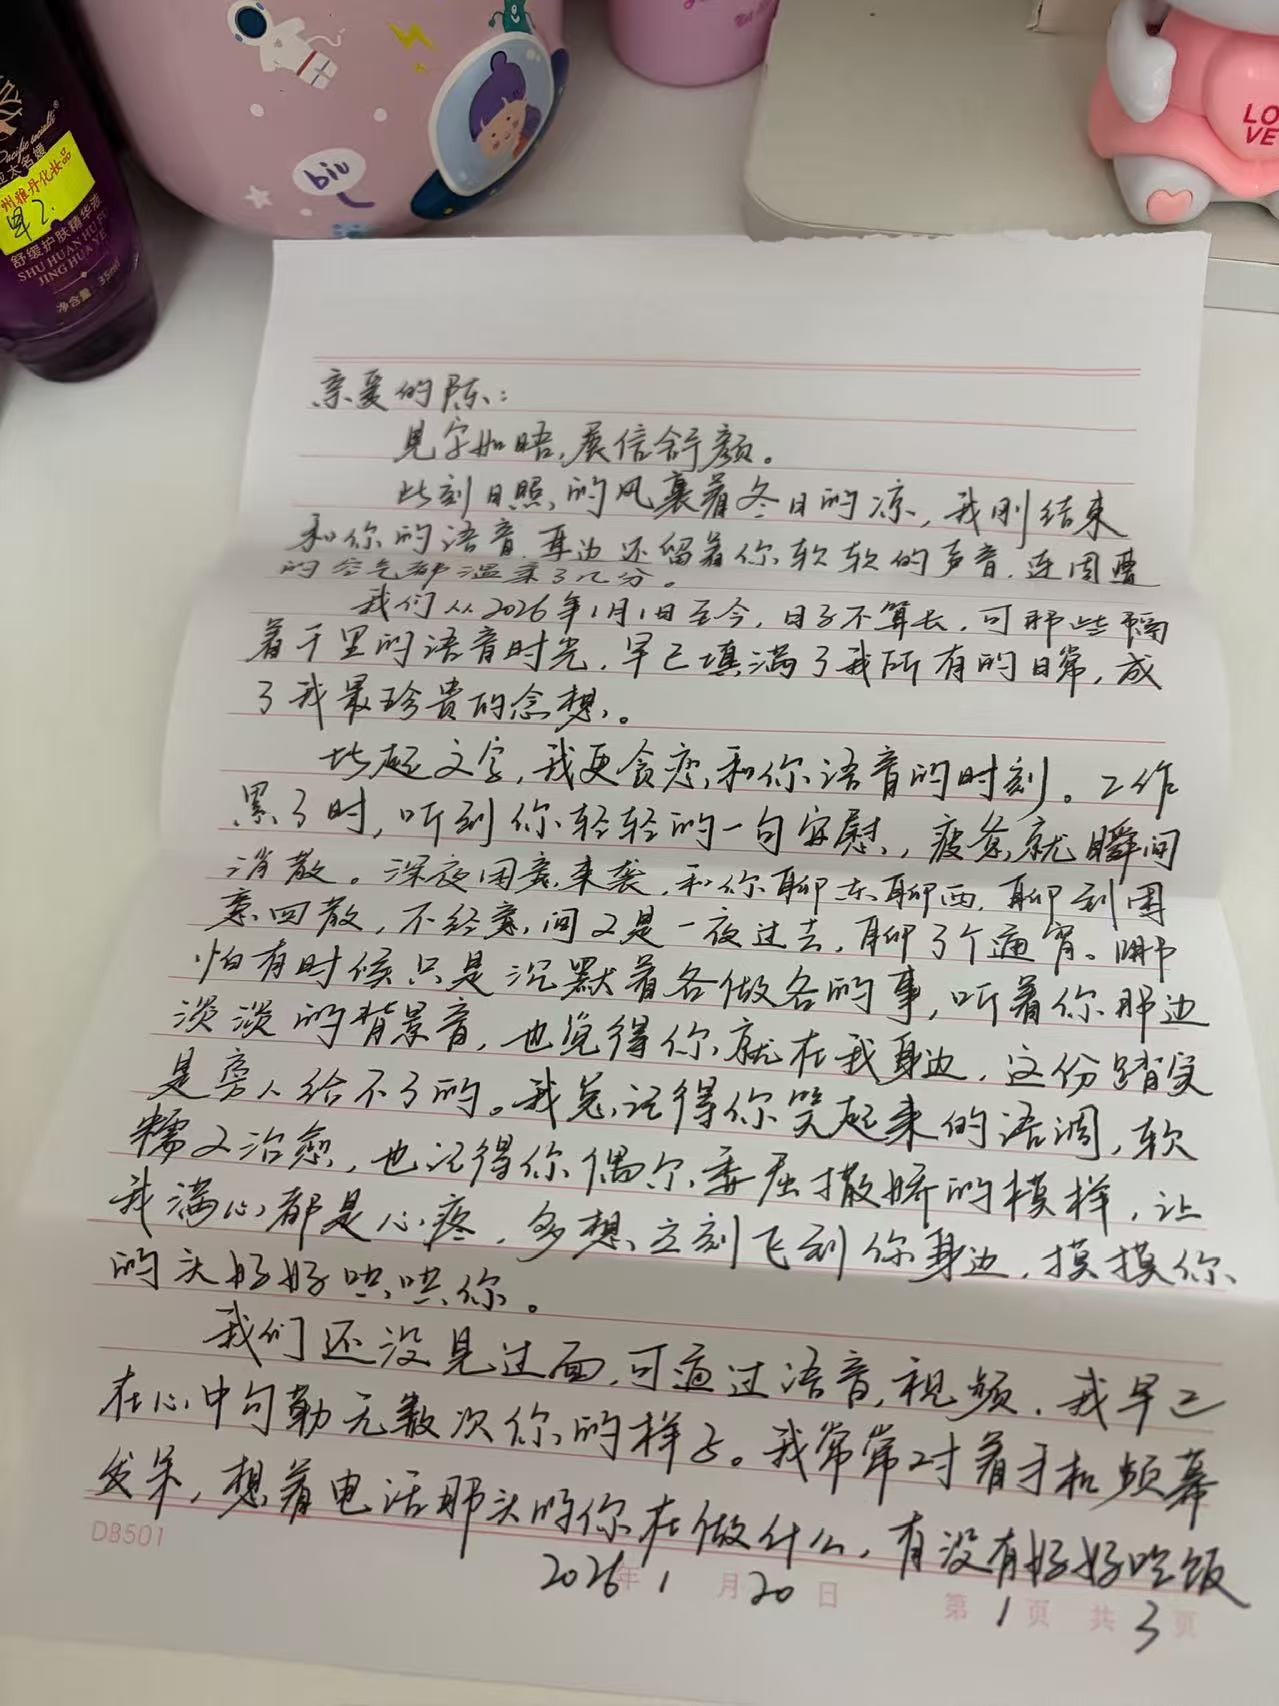 biu
LO
VE
Pacific socialite®
亚太名媛
州雅丹化妆品
早2.
舒缓护肤精华液
SHU HUAN HU FU
JING HUA YE
净含量:35ml
亲爱的陈:
见字如晤,展信舒颜。
此刻日照的风裹着冬日的凉,我刚结束
和你的语音,耳边还留着你软软的声音,连周遭
的空气都温柔了几分。
我们从2026年1月1日至今,日子不算长,可那些隔
着千里的语音时光,早已填满了我所有的日常,成
了我最珍贵的念想。
比起文字,我更贪恋和你语音的时刻。工作
累了时,听到你轻轻的一句安慰,疲惫就瞬间
消散。深夜困意来袭,和你聊东聊西,聊到困
意四散,不经意间又是一夜过去,聊了个通宵。哪
怕有时候只是沉默着各做各的事,听着你那边
淡淡的背景音,也觉得你就在我身边,这份踏实
是旁人给不了的。我总记得你笑起来的语调,软
糯又治愈,也记得你偶尔委屈撒娇的模样,让
我满心都是心疼,多想立刻飞到你身边,摸摸你
的头好好哄哄你。
我们还没见过面,可通过语音,视频,我早已
在心中勾勒无数次你的样子。我常常对着手机频幕
发呆,想着电话那头的你在做什么,有没有好好吃饭
DB501
2026年1月20日 第1页 共3页